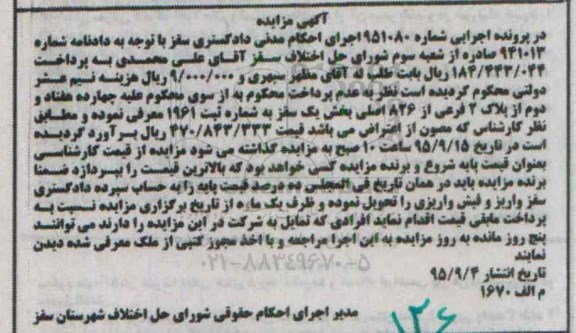 آگهی مزایده
در پرونده اجرایی شماره ۹۵۱۰۸۰ اجرای احکام مدنی دادگستری سقز با توجه به دادنامه شماره
۹۴۱۰۱۳ صادره از شعبه سوم شورای حل اختلاف سقز آقای علی محمدی به پرداخت
۱۸۴/۴۴۳/۰۴۴ ریال بابت طلب له آقای مظفر سپهری و ۹/۰۰۰/۰۰۰ ریال هزینه نیم عشر
دولتی محکوم گردیده است نظر به عدم پرداخت محکوم به از سوی محکوم علیه چهارده هفتاد و
دوم از پلاک ۲ فرعی از ۸۲۶ اصلی بخش یک سقز به شماره ثبت ۱۹۶۱ معرفی نموده و مطابق
نظر کارشناس که مصون از اعتراض می باشد قیمت ۴۷۰/۸۴۳/۳۳۳ ریال برآورد گردیده
است در تاریخ ۹۵/۹/۱۵ ساعت ۱۰ صبح به مزایده گذاشته می شود مزایده از قیمت کارشناسی
بعنوان قیمت پایه شروع و برنده مزایده کسی خواهد بود که بالاترین قیمت را بپردازد ضمنا
برنده مزایده باید در همان تاریخ فی المجلس ده درصد قیمت پایه را به حساب سپرده دادگستری
سقز واریز و فیش واریزی را تحویل نموده و ظرف یک ماه از تاریخ برگزاری مزایده نسبت به
پرداخت مابقی قیمت اقدام نماید افرادی که تمایل به شرکت در این مزایده را دارند می توانند
پنج روز مانده به روز مزایده به این اجرا مراجعه و با اخذ مجوز کتبی از ملک معرفی شده دیدن
نمایند
تاریخ انتشار ۹۵/۹/۴
م الف ۱۶۷۰
مدیر اجرای احکام حقوقی شورای حل اختلاف شهرستان سقز
۱۳۶